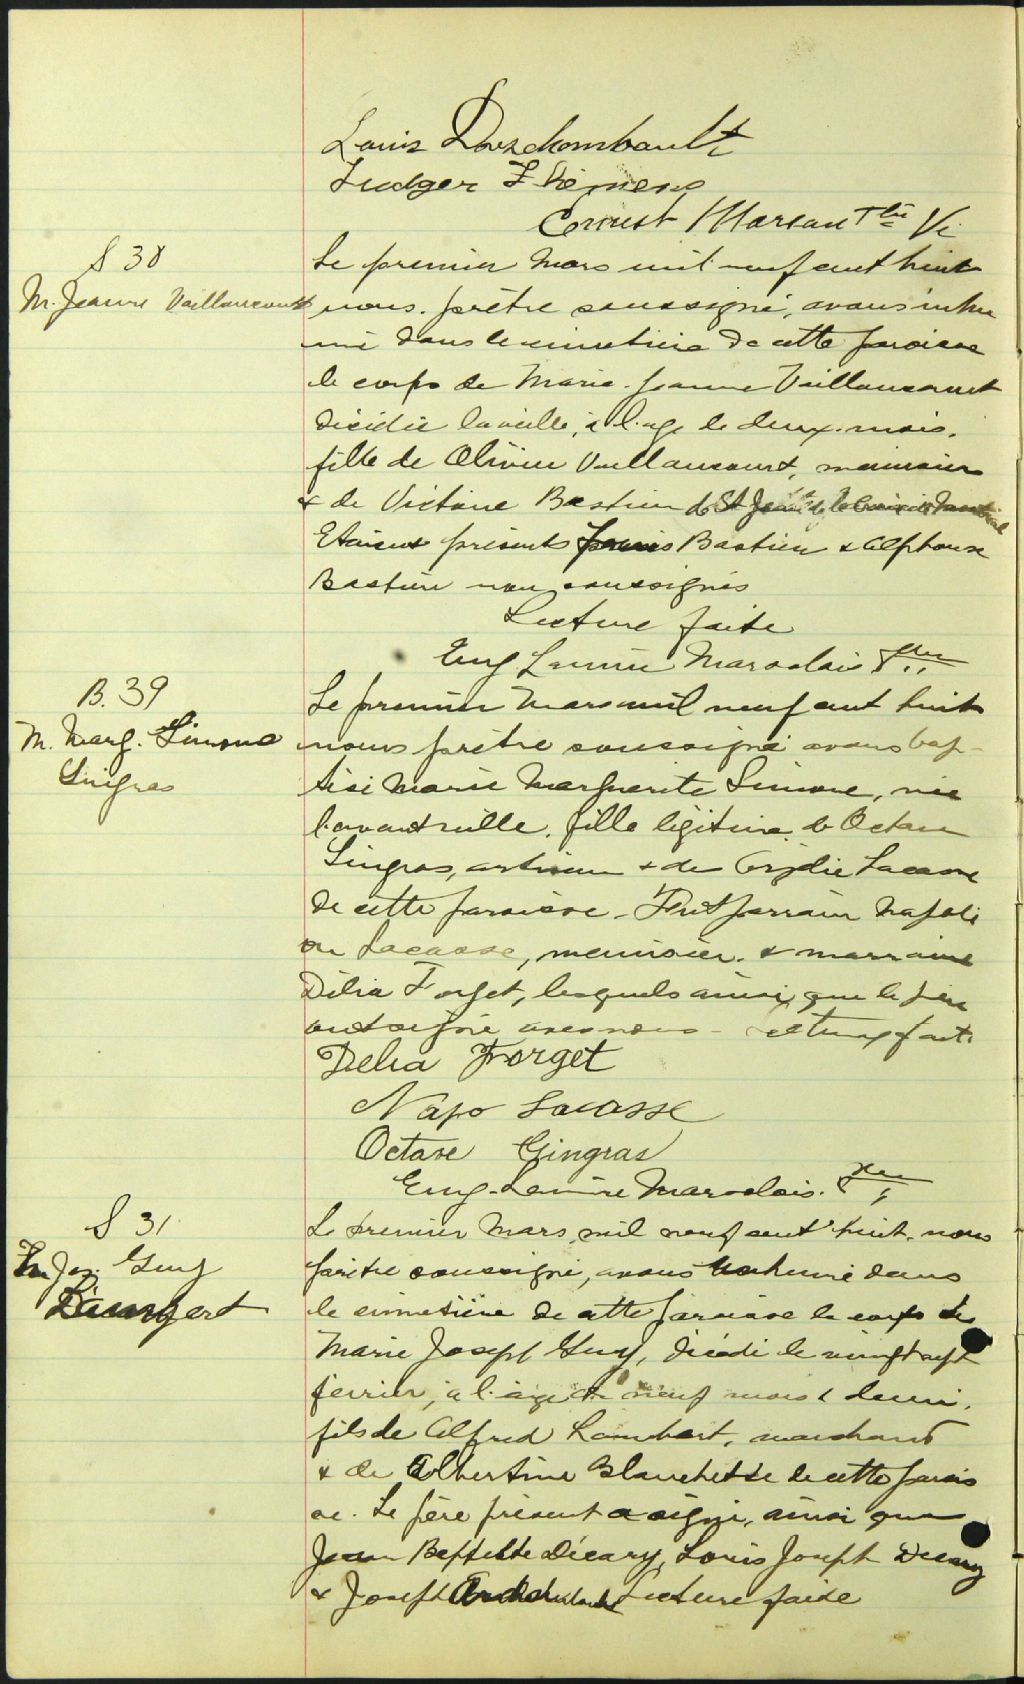 Louis Deschambault
Ludger
Ernest Moreau Ptre Vi
S 38
M. Jeanne Vaillancourt
Le premier Mars mil neuf cent huit
nous, prêtre soussigné, avons inhu
mé dans le cimetière de cette paroisse
le corps de Marie Jeanne Vaillancourt
décédée la veille, à l'age de deux mois,
fille de Olivier Vaillancourt, menuisier
& de Victoire Bastien de St Jean de la Croix de Montréal
Etaient présents Bastien & Alphonse
Bastien non soussignés
Lecture faite
Eug Marsolais Ptre
B. 39
M. Marg. Simone
Gingras
Le premier Mars mil neuf cent huit
nous prêtre soussigné avons bap-
tisé Marie Marguerite Simone, née
l'avant veille, fille légitime de Octave
Gingras, & de Lacasse
de cette paroisse - Fut parrain Napolé
on Lacasse, menuisier & marraine
Délia Forget, lesquels ainsi que le père
ont signé avec nous - Lecture faite
Delia Forget
Napo Lacasse
Octave Gingras
Eug. Marsolais. Ptre
S 31
Jos. Guy
Le premier Mars mil neuf cent huit, nous
prêtre soussigné, avons inhumé dans
le cimetière de cette paroisse le corps de
Marie Joseph Guy, décédé le vingt sept
février, à l'age de neuf mois & demi,
fils de Alfred Lambert, marchand
& de Albertine Blanchette de cette parois
se. Le père présent a signé, ainsi que
Jean Baptiste Décary, Louis Joseph Décary
& Joseph Lecture faite